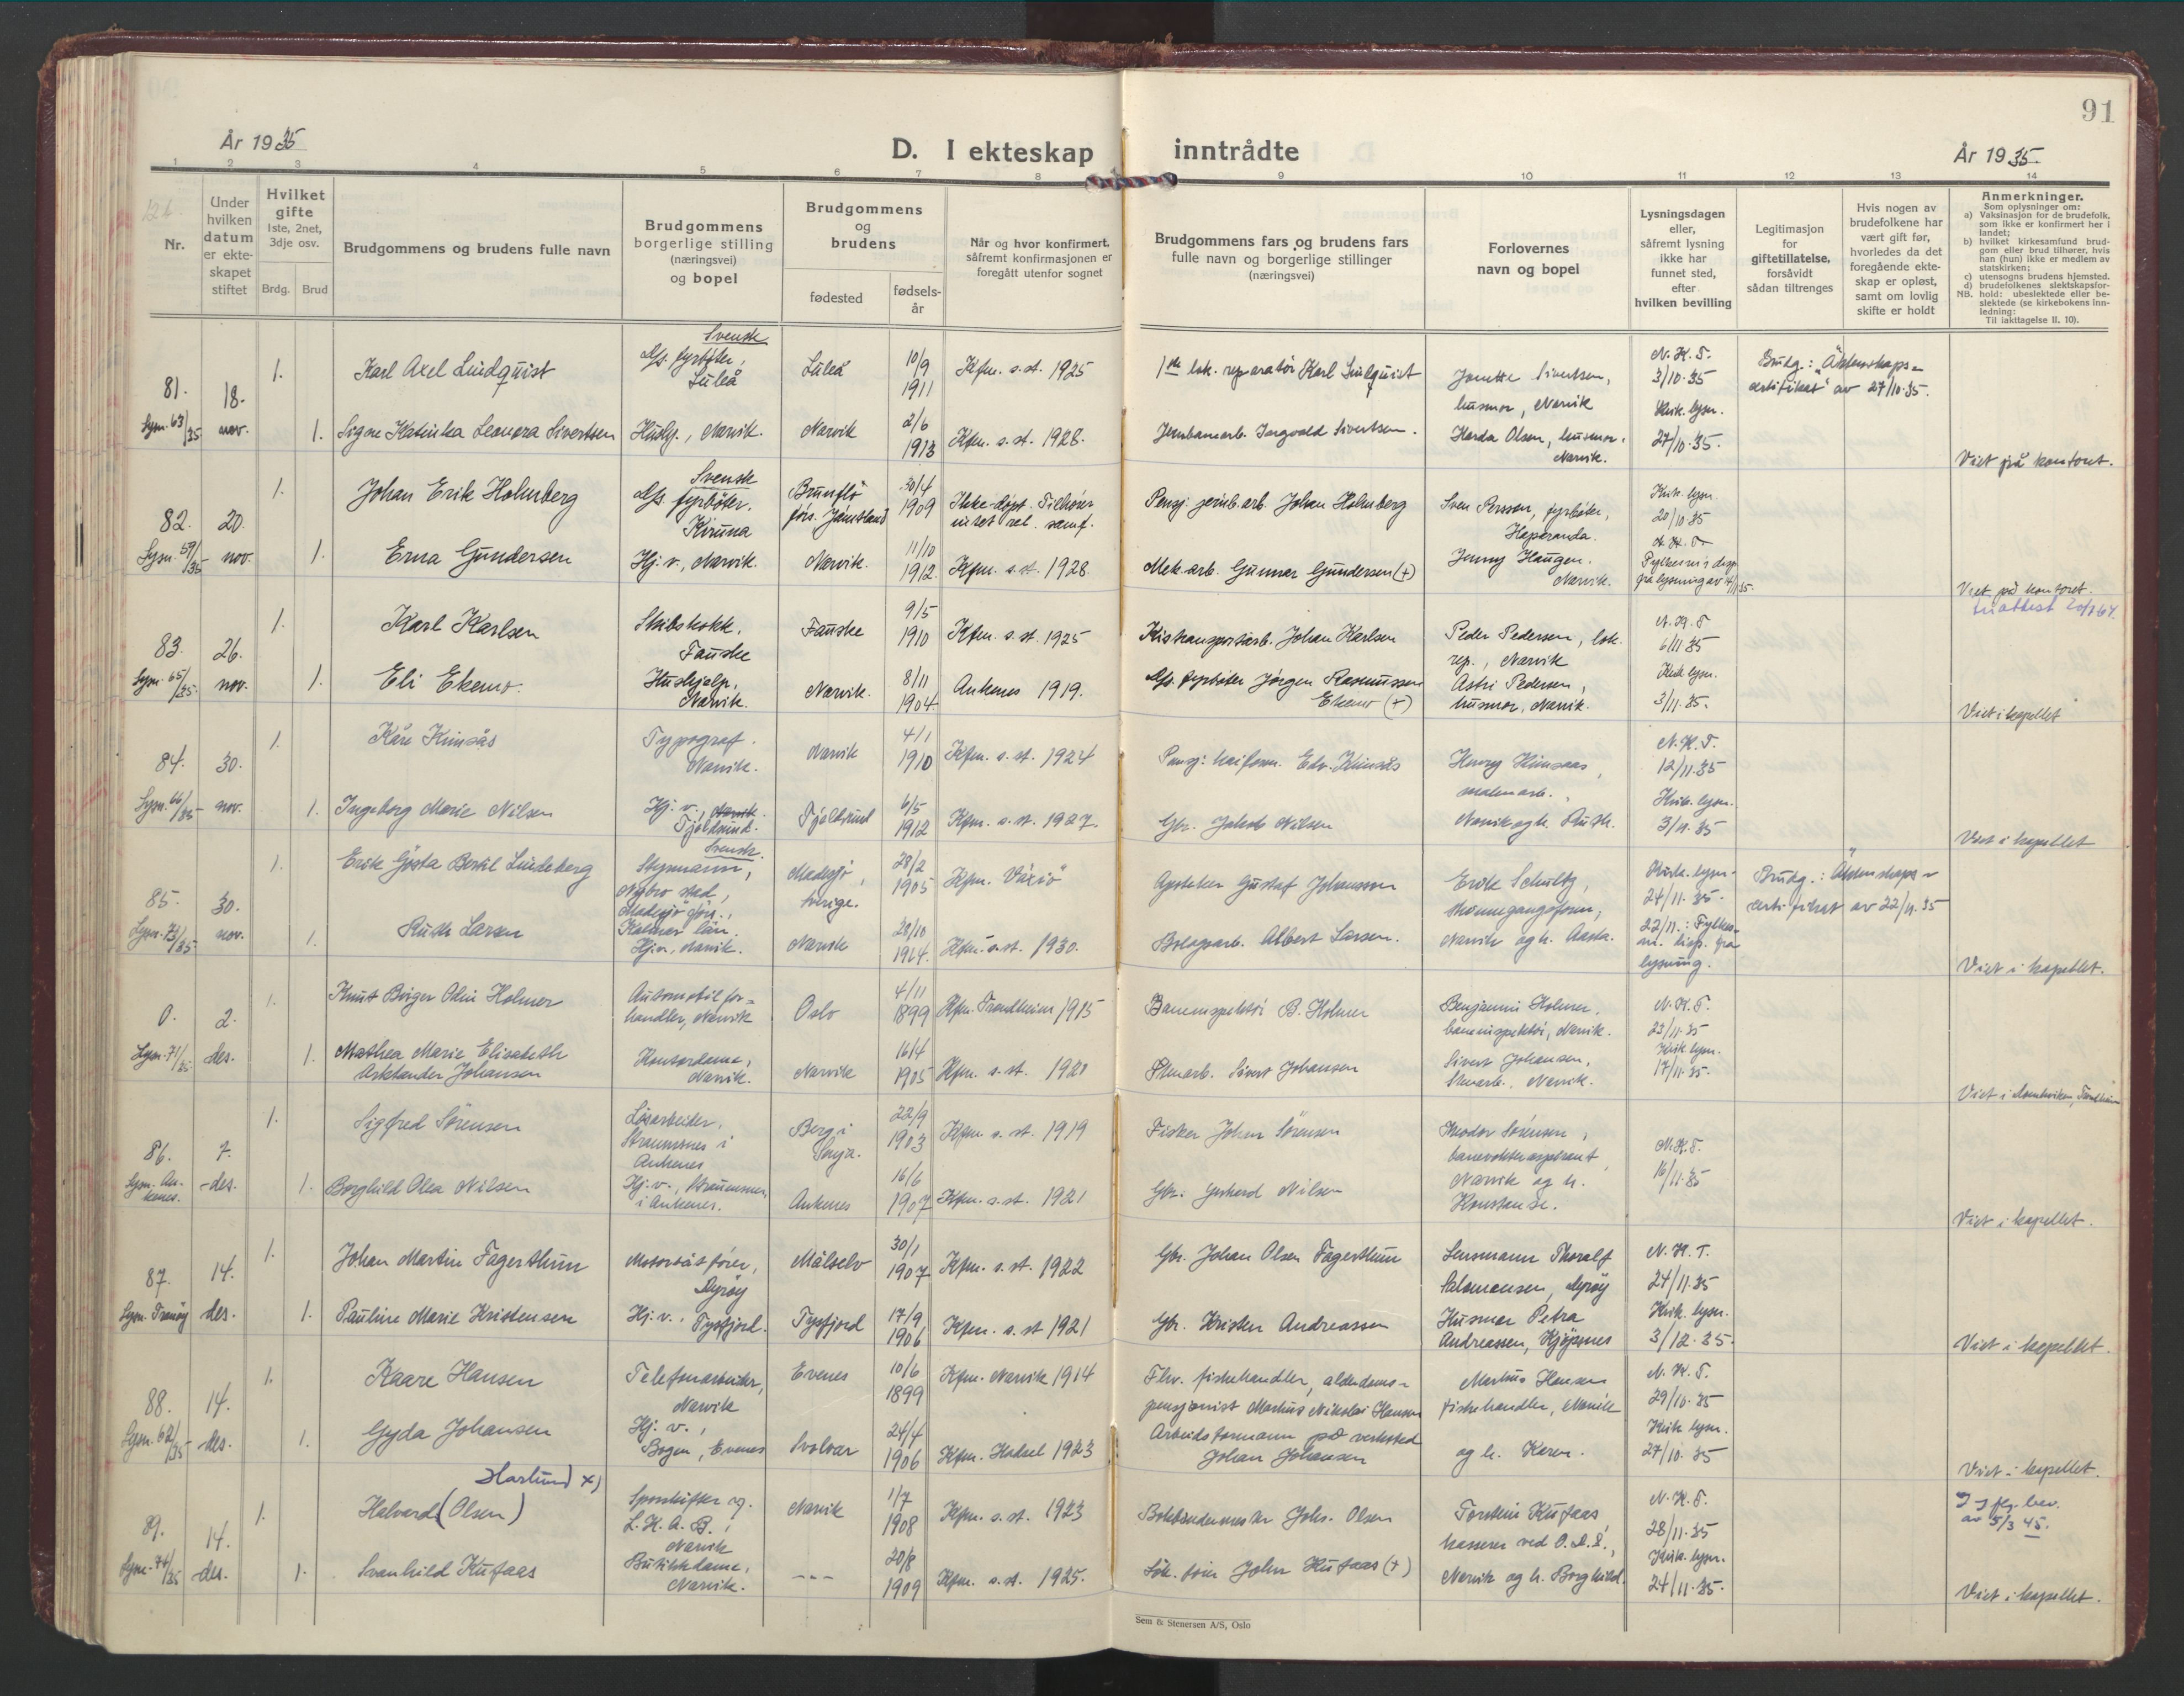 91
År 1935
D. I ekteskap inntrådte
År 1935.
1 2 3 4 5 6 7 8 9 10 11 12 13 14
Nr.
Under hvilken datum er ekteskapet stiftet
Hvilket gifte
1ste, 2net, 3dje osv.
Brdg. Brud
Brudgommens og brudens fulle navn
Brudgommens borgerlige stilling (næringsvei) og bopel
Brudgommens og brudens
fødested
fødsels-år
Når og hvor konfirmert, såfremt konfirmasjonen er foregått utenfor sognet
Brudgommens fars og brudens fars fulle navn og borgerlige stillinger (næringsvei)
Forlovernes navn og bopel
Lysningsdagen eller, såfremt lysning ikke har funnet sted, efter hvilken bevilling
Legitimasjon for giftetillatelse, forsåvidt sådan tiltrenges
Hvis nogen av brudefolkene har vært gift før, hvorledes da det foregående ekteskap er opløst, samt om lovlig skifte er holdt
Anmerkninger.
Som oplysninger om:
a) Vaksinasjon for de brudefolk, som ikke er konfirmert her i landet;
b) hvilket kirkesamfund brudgom eller brud tilhører, hvis han (hun) ikke er medlem av statskirken;
c) utensogns brudens hjemsted.
d) brudefolkenes slektskapsforhold: ubeslektede eller beslektede (se kirkebokens innledning:
NB.
Til iakttagelse II. 10).
81. 18. 1. Karl Axel Lindquist Svensk fyrbøter, Luleå Luleå 10/9 1911 Kfm. s. st. 1925 lok. reparatör Karl Lindquist Jonette Sivertsen, husmor, Narvik N.K.T. 3/10.35 Brudg.: "Äktenskapscertifikat" av 27/10.35.
Lysn. 63/35 nov. 1. Signe Katinka Leonora Sivertsen Huslg., Narvik. Narvik 2/6 1913 Kfm. s. st. 1928. Jernbanearb. Ingvald Sivertsen. Harda Olsen, husmor, Narvik. Kirk. lysn. 27/10.35. Viet på kontoret.
82. 20. 1. Johan Erik Holmberg Svensk fyrbøter. Kiruna Brunflo förs. Jämtland 30/4 1909 Ikke døpt. Tilhører intet rel. samf. Pensj. jernb.arb. Johan Holmberg Sven Persson, fyrbøter, Haparanda. Kirk. lysn. 20/10 35
Lysn. 59/35 nov. 1. Erna Gundersen Hj. v., Narvik. Narvik. 11/10 1912. Kfm. s. st. 1928. Mek. arb. Gunnar Gundersen (+) Jenny Haugen. Narvik. N.K.T. Fylkesm's disp. fra lysning av 14/11 35. Viet på kontoret.
83. 26. 1. Karl Karlsen Skibskokk, Fauske Fauske 9/5 1910 Kfm. s. st. 1925 Kistransportarb. Johan Karlsen Peder Pedersen, lok. rep., Narvik N.K.T 6/11 35
Lysn. 65/35. nov. 1. Eli Ekemo. Hushjelp, Narvik. Narvik. 8/11 1904 Ankenes 1919. fyrbøter Jørgen Rasmussen Ekemo (+) Astri Pedersen, husmor, Narvik. Kirk. lysn. 3/11.35. Viet i kapellet
84. 30. 1. Kåre Kimsås Typograf. Narvik. Narvik 4/1 1910 Kfm. s. st. 1924 Pensj. kaiform. Edv. Kimsås Henry Kimsaas, malmarb., N.K.T. 12/11.35
Lysn. 66/35 nov. 1. Ingeborg Marie Nilsen Hj. v., Narvik. Tjeldsund. Tjeldsund 6/5 1912 Kfm. s. st. 1927. Gbr. Jakob Nilsen Narvik og h. Ruth. Kirk. lysn. 3/11.35 Viet i kapellet
85. 30. 1. Erik Gösta Bertil Lindeberg Svensk. Styrmann, Nybro stad, Madesjö förs., Kalmar län. Madesjö, Sverige. 28/2 1905 Kfm. Växiö Apoteker Gustaf Johansson Erik Schultz, skinnegangsform., Kirk. lysn. 24/11.35. Brudg.: Äktenskapscertifikat av 22/11.35
Lysn. 73/35 nov. 1. Ruth Larsen Hj.v., Narvik. Narvik 28/10 1914. Kfm. s. st. 1930. Bolagsarb. Albert Larsen. Narvik og h. Aasta. 22/11.: Fylkesm. disp. fra lysning. Viet i kapellet.
0. 2. 1. Knut Birger Odin Holmer Automobilforhandler, Narvik Oslo 4/11 1899 Kfm. Trondheim 1915 Baneinspektør B. Holmer Benjamin Holmer, baneinspektør, Narvik. N.K.T. 23/11.35
Lysn. 71/35 des. 1. Mathea Marie Elisabeth Arktander Johansen Kontordame, Narvik. Narvik 16/4 1905 Kfm. s. st. 1920 Sivert Johansen Sivert Johansen, Narvik. Kirk. lysn. 17/11.35. Viet i Domkirken, Trondheim
86. 7. 1. Sigfred Sørensen Løsarbeider, Straumsnes i Ankenes Berg i Senja. 22/9 1903 Kfm. s. st. 1919 Fisker Johan Sørensen Theodor Sørensen, banevokteraspirant, N.K.T. 16/11.35
Lysn. Ankenes. des. 1. Borghild Olea Nilsen Hj. v., Straumsnes i Ankenes. Ankenes 16/6 1907 Kfm. s. st. 1921 Gbr. Gerhard Nilsen Narvik og h. Konstanse. Viet i kapellet.
87. 14. 1. Johan Martin Fagerthun Motorbåtfører, Dyrøy Målselv 30/1 1907 Kfm. s. st. 1922 Gbr. Johan Olsen Fagerthun Lensmann Thoralf Salomonsen, Dyrøy N.K.T. 24/11.35
Lysn. Tranøy des. 1. Pauline Marie Kristensen Hj. v., Tysfjord. Tysfjord 17/9 1906 Kfm. s. st 1921 Gbr. Kristen Andreassen Husmor Petra Andreassen, Kjøpsnes Kirk. lysn. 3/12.35. Viet i kapellet.
88. 14. 1. Kaare Hansen Telefonarbeider, Narvik Evenes 10/6 1899 Kfm. Narvik 1914 Fhv. fiskehandler, alderdomspensjonist Markus Nikolai Hansen Markus Hansen fiskehandler, Narvik N.K.T. 29/10.35
Lysn. 62/35 des. 1. Gyda Johansen Hj. v., Bogen, Evenes Svolvær 24/4 1906 Kfm. Hadsel 1923 Arbeidsformann på verksted Johan Johansen og h. Karen. Kirk. lysn. 27/10.35 Viet i kapellet.
89. 14. 1. Halvard (Olsen) Harlund x) Sporskifter v. L.K.A.B., Narvik Narvik 1/7 1908 Kfm. s. st. 1923 Bokbindermester Johs. Olsen Torstein Kufaas, kasserer ved N.K.T. 28/11.35 flg. bev. av 5/3 45.
Lysn. 74/35 des. 1. Svanhild Kufaas Butikkdame, Narvik. --- 20/8 1909 Kfm. s. st. 1925. Lok. fører John Kufaas (+) Narvik og h. Borghild. Kirk. lysn. 24/11.35. Viet i kapellet.
Sem & Stenersen A/S, Oslo